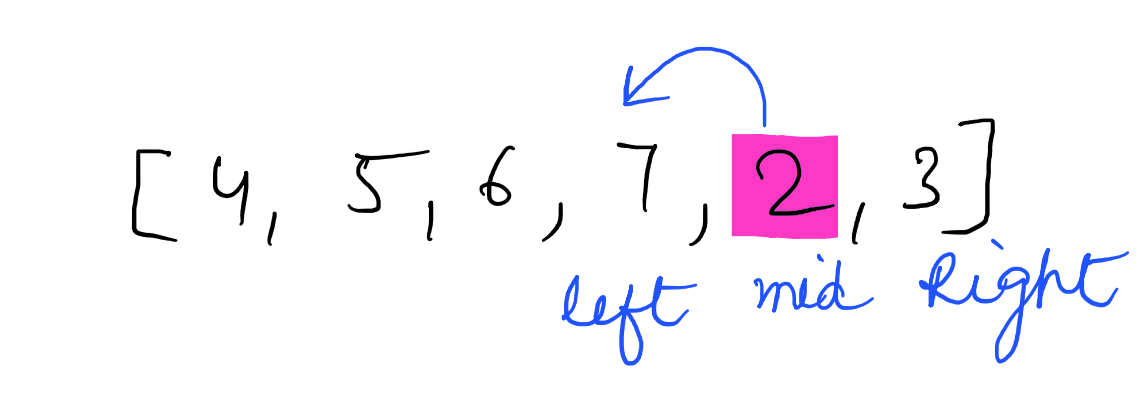 [ 4, 5, 6, 7, 2, 3 ]
left mid Right